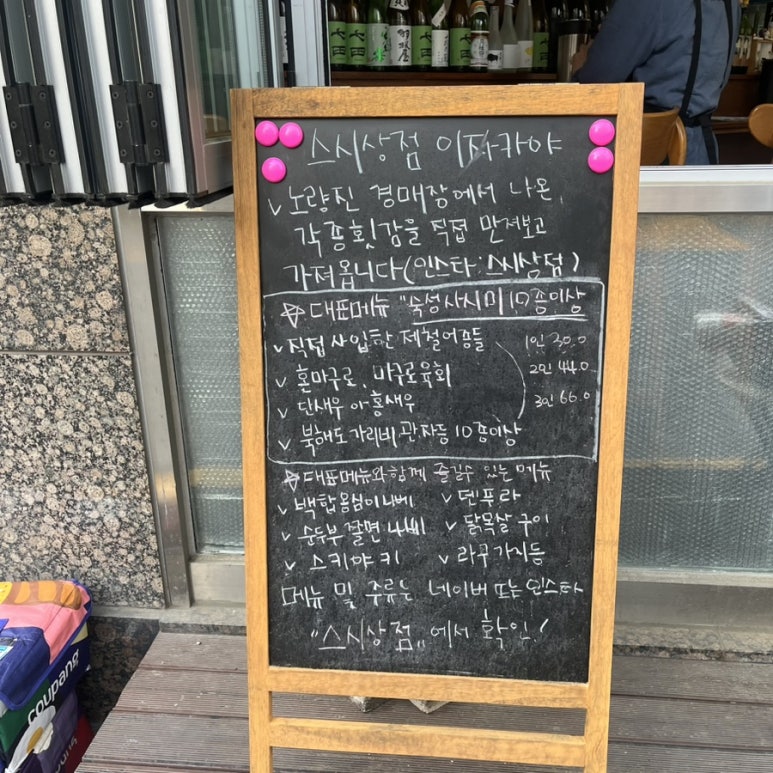 스시상점 이자카야
✓ 노량진 경매장에서 나온
각종횟감을 직접 만져보고
가져옵니다(인스타:스시상점)
☆ 대표메뉴 "숙성사시미10종이상
✓ 직접 사입한 제철어종들
1인 30.0
✓ 혼마구로, 마구로육회
2인 44.0
✓ 단새우 아홍새우
3인 66.0
✓ 북해도가리비, 관자등 10종이상
☆ 대표메뉴와함께 즐길수 있는 메뉴
✓ 백합옹심이나베 ✓ 덴푸라
✓ 순두부쫄면나베 ✓ 닭목살구이
✓ 스키야키 ✓ 라꾸가지등
메뉴 및 주류는 네이버 또는 인스타
"스시상점" 에서 확인!
coupang